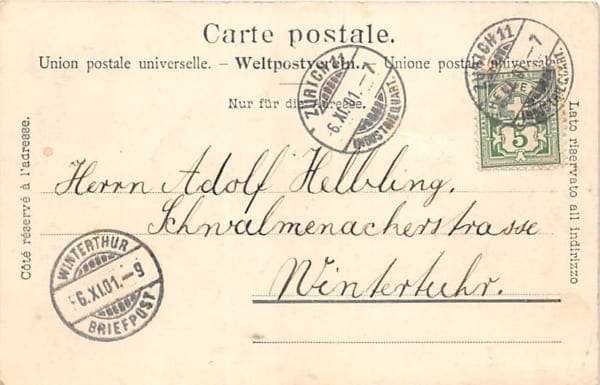 Carte postale.
Union postale universelle. – Weltpostverein. – Unione postale universale
Nur für die Adresse.
Côté réservé à l'adresse.
Lato riservato all indirizzo
ZÜRICH 11
6.XI.01.–7
INDUSTRIEQUART.
ZÜRICH 11
–7
HELVE
5
Herrn Adolf Helbling,
Schwalmenackerstrasse
Wintertuhr.
WINTERTHUR
6.XI.01.–9
BRIEFPOST